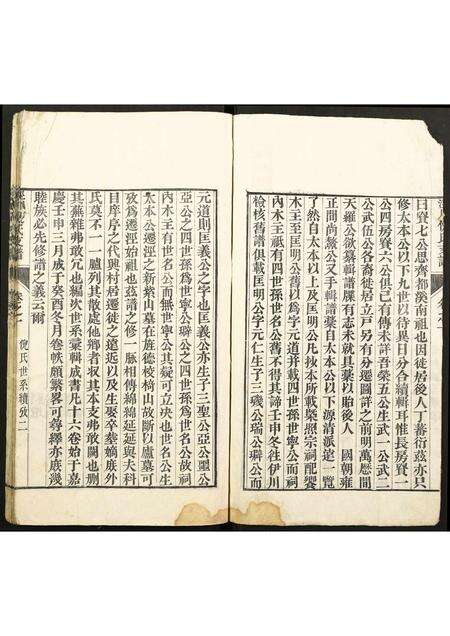 曰賽七公思齊都漢南祖也因徙居後人丁蕃衍茲亦只
修太本公以下九世以待異日分各續輯耳惟長房賽一
公四房賽六公俱已有傳未詳吾榮五公生武一公武二
公武伍公各裔徙居立戶另有分遷圖詳之前明萬厯間
天羅公欲纂輯譜牒有志未就其藁以貽後人 國朝雍
正間尚鰲公又手輯譜藁自太本公以下源清派遠一覽
了然自太本公以上及匡明公凡抄本所載槩照宗祠配饗
木主至匡明公舊以為字元道并載四世孫世寧公而祠
內木主祗有四世孫世名公終不得其諦壬申冬往伊川
檢核舊譜俱載匡明公字元仁生子三琖公瑞公聨公而
元道則匡義公之字也匡義公亦生子三聖公亞公䀻公
亞公之四世孫為世寧公聨公之四世孫為世名公故祠
內木主有世名公而無世寧公其疑可立决也世名公生
太本公遷涇之新紫山墓在旌德梭椅山故斷以盧墓可
攷為遷涇始祖也茲譜之修一脈相傳綿綿延延與夫科
目庠序之代興村居遷徙之遠近以及生娶卒塟嫡庶外
氏莫不一一臚列其散處他鄉者収其本支弗敢闕也删
其蕪雜弗敢冗也編次世系彙輯成書凡十六卷始于嘉
慶壬申三月成于癸酉冬月卷帙頗繁畧可尋繹亦庶幾
睦族必先修譜之義云爾
倪氏世系續攷二